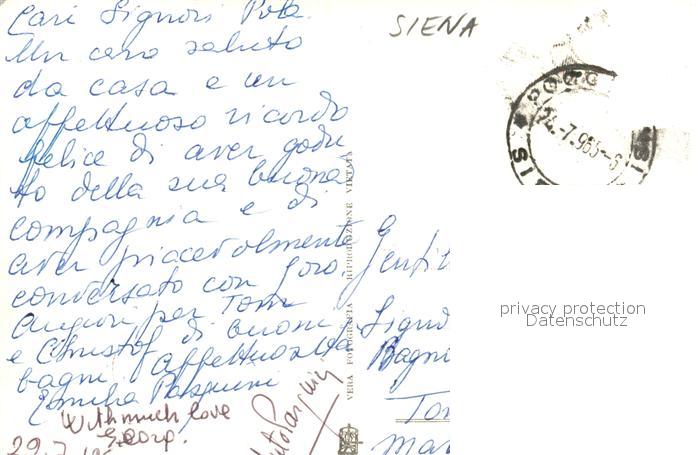 Cari Signori Pola.
Un caro saluto
da casa e un
affettuoso ricordo
felice di aver godu
to della sua buona
compagnia e di
aver piacevolmente
conversato con loro
Auguri per Tom
e Christof di buoni
bagni affettuosità
Emilia Pasquini
With much love
Georg.
29.7
SIENA
POGG
24.-7.965-6
SI
SI
VERA FOTOGRAFIA RIPRODUZIONE VIETATA
Gentil
Signo
Bagni
Tor
Mar
privacy protection
Datenschutz